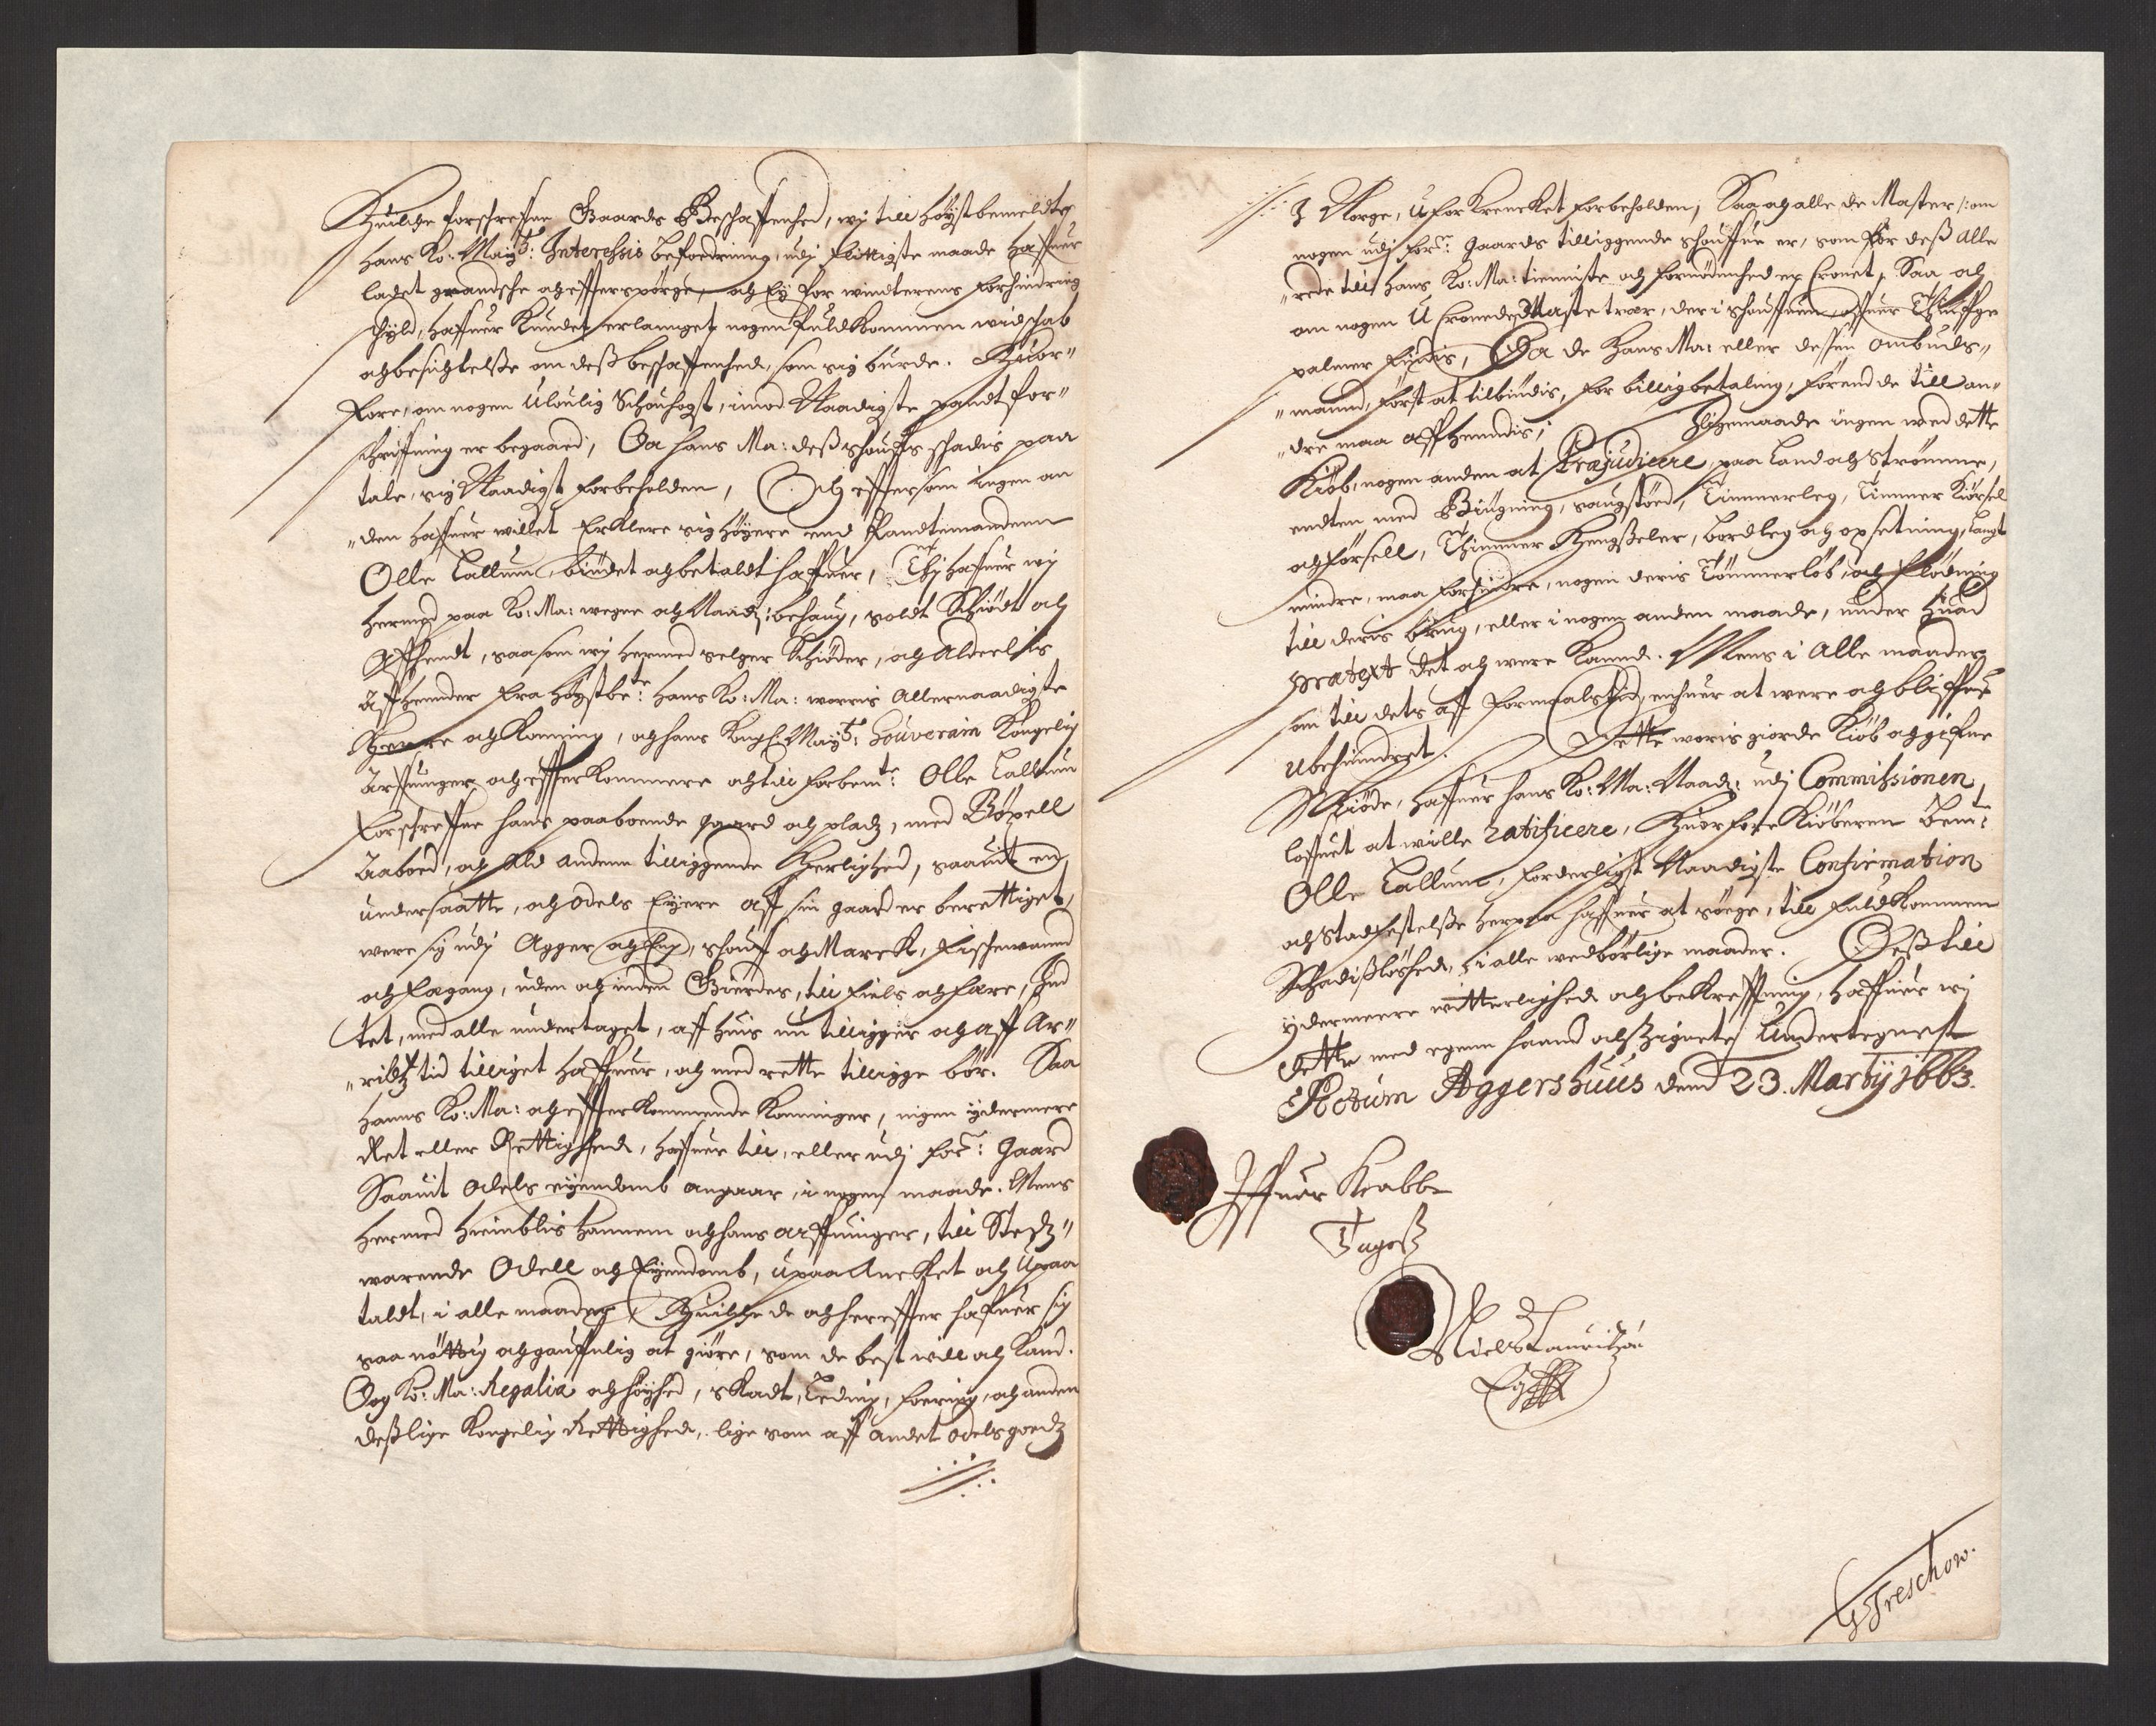 Huilche forschrefne Gaards Beschaffenhed, wj till höystbemeldte
Hans Ko: May:tt: Interessis befordring, udj flittigste maade haffuer
ladet grandsche og effterspörge, och Ej for windterens forhindring
schyld, haffuer kundet erlanget nogen fuldkommen widschab
och besichtelsse om deß beschaffenhed, som sig burde. Huor"
fore, om nogen Uloulig Schouhogst, imod Naadigste pandt for"
schriffning er begaaed, Da hans Ma: deß schouffs schadis paa
tale, sig Naadigst forbeholden, Och effter som ingen an
"den haffuer willet Erklere sig höyere end Pandtemandenn
Olle Callum, biudet och betaldt haffuer, Thj haffuer wj
hermed paa Ko: Ma: wegne och Naad: behaug, soldt Schiödt och
Affhendt, saa som wj hermed selger Schiöder, och Aldeelis
Affhennder fra höystbe:te hans Ko: Ma: worris Allernaadigste
Herre och Konning, och hans Kongl: May:tt: Souverain Kongelig
Arffuinger och effterkommere och till forbem:te: Olle Callum
forschreffne hans paaboende gaard och pladz, med Böxell
Aaboed, och Ald andenn tilliggende Herlighed, saauit en
undersaatte, och Odels Eyere aff sin gaard er berettiget,
were sig udj Agger och Eng, schouff och Marck, fischewannd
och fægang, uden och inden Giærdes, till fields och fiære, Ind
tet, med alle undertaget, aff huis nu tilligger och aff Ar"
"rildz tid tilliget haffuer, och med rette tilligge bör. Saa
Hanns Ko: Ma: och effterkommende Konninger, ingen ydermere
Ret eller Rettighed, haffuer till, eller udj for:ne: Gaard
Saauit Odels eyendomb angaar, i nogen maade. Mens
hermed hiemblis hannem och hans arffuinger, till Stedtz"
warende Odell och Eyendomb, upaaancket och Upaa
taldt, i alle maader Huilche de och hereffter haffuer sig
saa nöttig och gauffnlig at giöre, som de best will och kand.
Dog Ko: Ma: Regalia och höyhed, skadt, Leding, foering, och anden
deßlige Kongelig Rettighed, lige som aff andet odelsgoedz
I Norge, uforkrencket forbeholden, Saa och alle de Master /: om
nogen udj for:ne: Gaards tilliggende schouffue er, som för deß alle
"rede till Hans Ko: Ma: tienniste och fornödenhed er Cronet, Saa och
om nogen U Cronedes Mastetræer, der i schouffuen, offuer Thiuffge
palmer findis, Da de Hans Ma: eller dessen Ombuds"
"mannd, först at tilbiudis, for billig betaling, förend de till an"
"dre maa affhenndis, Ligemaade ingen wed dette
Kiöb, nogen anden at Præjudicere, paa Land och Strömme,
endten med Brugning, saugstöed, Timmerleg, Timmer Kiörsel
och försell, Thimmer Hengßeler, bordleg och opsetning, langt
mindre, maa forhindre, nogen deris Tömmerlöb, och flödning
till deris brug, eller i nogen anden maade, under huad
prætext det och were kannd. Mens i Alle maader,
som till dets aff formaalstid, enhuer at were och bliffue
ubehindret. Dette woris giorde Kiöb och giffne
Schiöde, haffuer hans Ko: Ma: Naad: udj Commissionen,
loffuet at wille ratificere, Huorfore Kiöberen Bem:te
Olle Callum, forderligst Naadigste Confirmation
och Stadfestelße herpaa haffuer at söege, till fuldkommen
Schadißlöshed, i alle wedbörlige maader. Deß till
ydermeere witterlighed och bekrefftning, haffuer wj
dette med egenn haannd och Zigneter Undertegnest
Actum Aggershuus dend 23. Martij 1663.
Iffuar Krabbe
Niels Lauritzön
G Treschow.